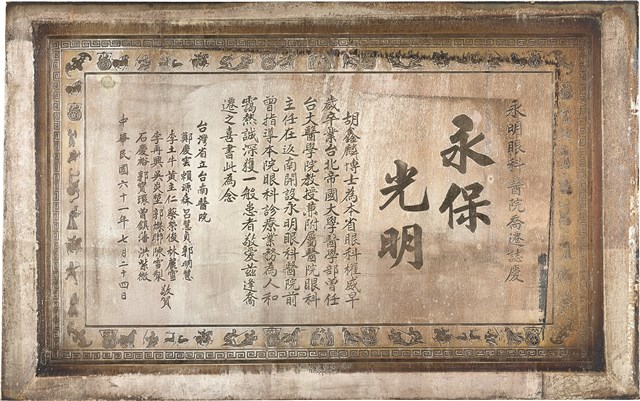 永明眼科醫院喬遷誌慶
永保
光明
胡鑫麟博士為本省眼科權威早
歲卒業台北帝國大學醫學部曾任
台大醫學院教授兼附屬醫院眼科
主任在返南開設永明眼科醫院前
曾指導本院眼科診療業務為人和
靄然誠深獲一般患者敬愛茲逢喬
遷之喜書此為念
台灣省立台南醫院
鄭慶雲 賴源森 呂慧貞 郭明慧
李土牛 黃主仁 蔡榮俊 林麗雪 敬賀
李再興 吳炎堅 郭 陳雪梨
石慶裕 郭寶環 曾鎮藩 洪紫微
中華民國六十一年七月二十四日